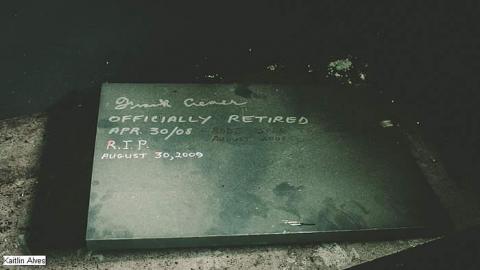 Frank
OFFICIALLY RETIRED
APR. 30/08
R.I.P.
AUGUST 30, 2009
Kaitlin Alves